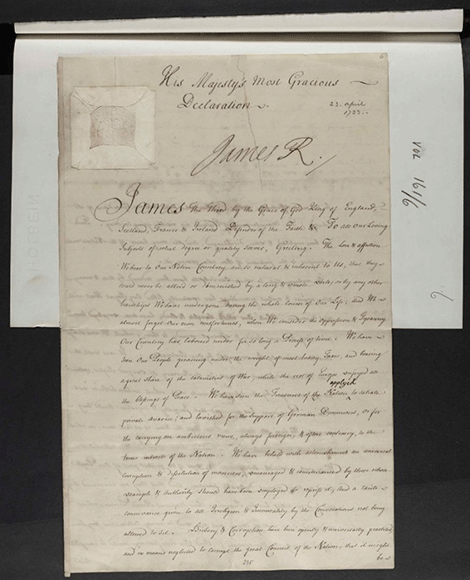 His Majesty's Most Gracious
Declaration.
23. April
1722.
James R.
James the Third by the Grace of God King of England,
Scotland, France & Ireland Defender of the Faith &c. To all our Loving
Subjects of what degree or quality soever, Greeting. The love & affection
We bear to Our Native Countrey, are so natural & inherent to Us, that they
could never be altered or diminished by a long & remote Exile, or by any other
hardships We have undergone during the whole course of Our Life, and We
almost forget Our own misfortunes, when We consider the oppression & Tyranny
Our Country has laboured under for so long a Process of time. We have
seen Our People groaning under the weight of most heavy Taxes, and bearing
a great share of the calamities of War while the rest of Europe enjoyed all
the blessings of Peace. We have seen the Treasures of the Nation applyed to satiate
private avarice, and lavished for the Support of German Dominions, or for
the carrying on ambitious views, always foreign, & often contrary, to the
true interest of the Nation. We have beheld with astonishment an universal
corruption & dissolution of manners, encouraged & countenanced by those whose
example & Authority should have been employed to repress it, And a tacite
connivance given to all Irreligion & Immorality by the Convocations not being
allowed to Act. Bribery & Corruption have been openly & universally practised
and no means neglected to corrupt the great Council of the Nation, that it might
be
VOL 161/6
6